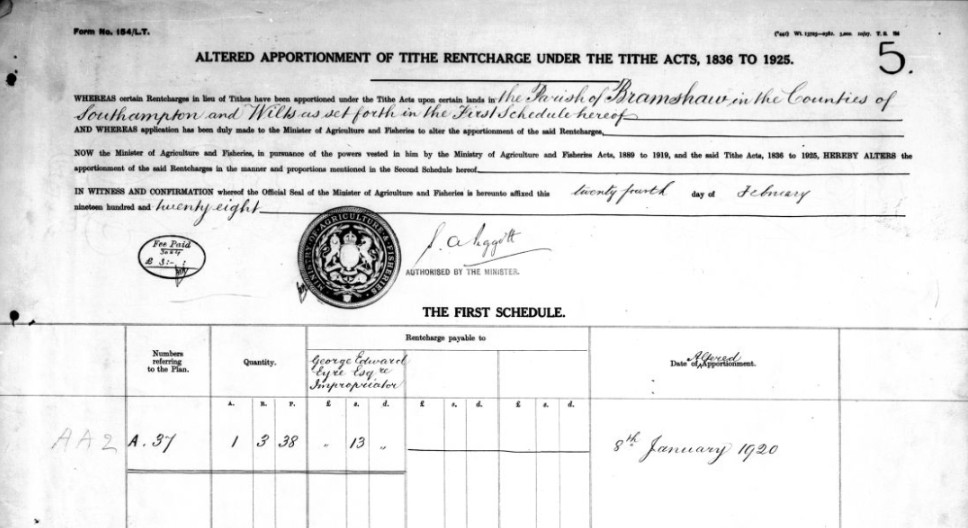 Form No. 154/L.T.
5.
ALTERED APPORTIONMENT OF TITHE RENTCHARGE UNDER THE TITHE ACTS, 1836 TO 1925.
WHEREAS certain Rentcharges in lieu of Tithes have been apportioned under the Tithe Acts upon certain lands in the Parish of Bramshaw in the Counties of
Southampton and Wilts as set forth in the First Schedule hereof
AND WHEREAS application has been duly made to the Minister of Agriculture and Fisheries to alter the apportionment of the said Rentcharges,
NOW the Minister of Agriculture and Fisheries, in pursuance of the powers vested in him by the Ministry of Agriculture and Fisheries Acts, 1889 to 1919, and the said Tithe Acts, 1836 to 1925, HEREBY ALTERS the
apportionment of the said Rentcharges in the manner and proportions mentioned in the Second Schedule hereof.
IN WITNESS AND CONFIRMATION whereof the Official Seal of the Minister of Agriculture and Fisheries is hereunto affixed this twenty fourth day of February
nineteen hundred and twenty eight
Fee Paid
£ 3:-:
MINISTRY OF AGRICULTURE & FISHERIES
AUTHORISED BY THE MINISTER.
THE FIRST SCHEDULE.
Numbers
referring
to the Plan.
Quantity.
Rentcharge payable to
George Edward
Eyre Esqre
Impropriator
Date of Altered Apportionment.
A. R. P. £ s. d. £ s. d. £ s. d.
AA2 A.37 1 3 38 „ 13 „ 8th January 1920